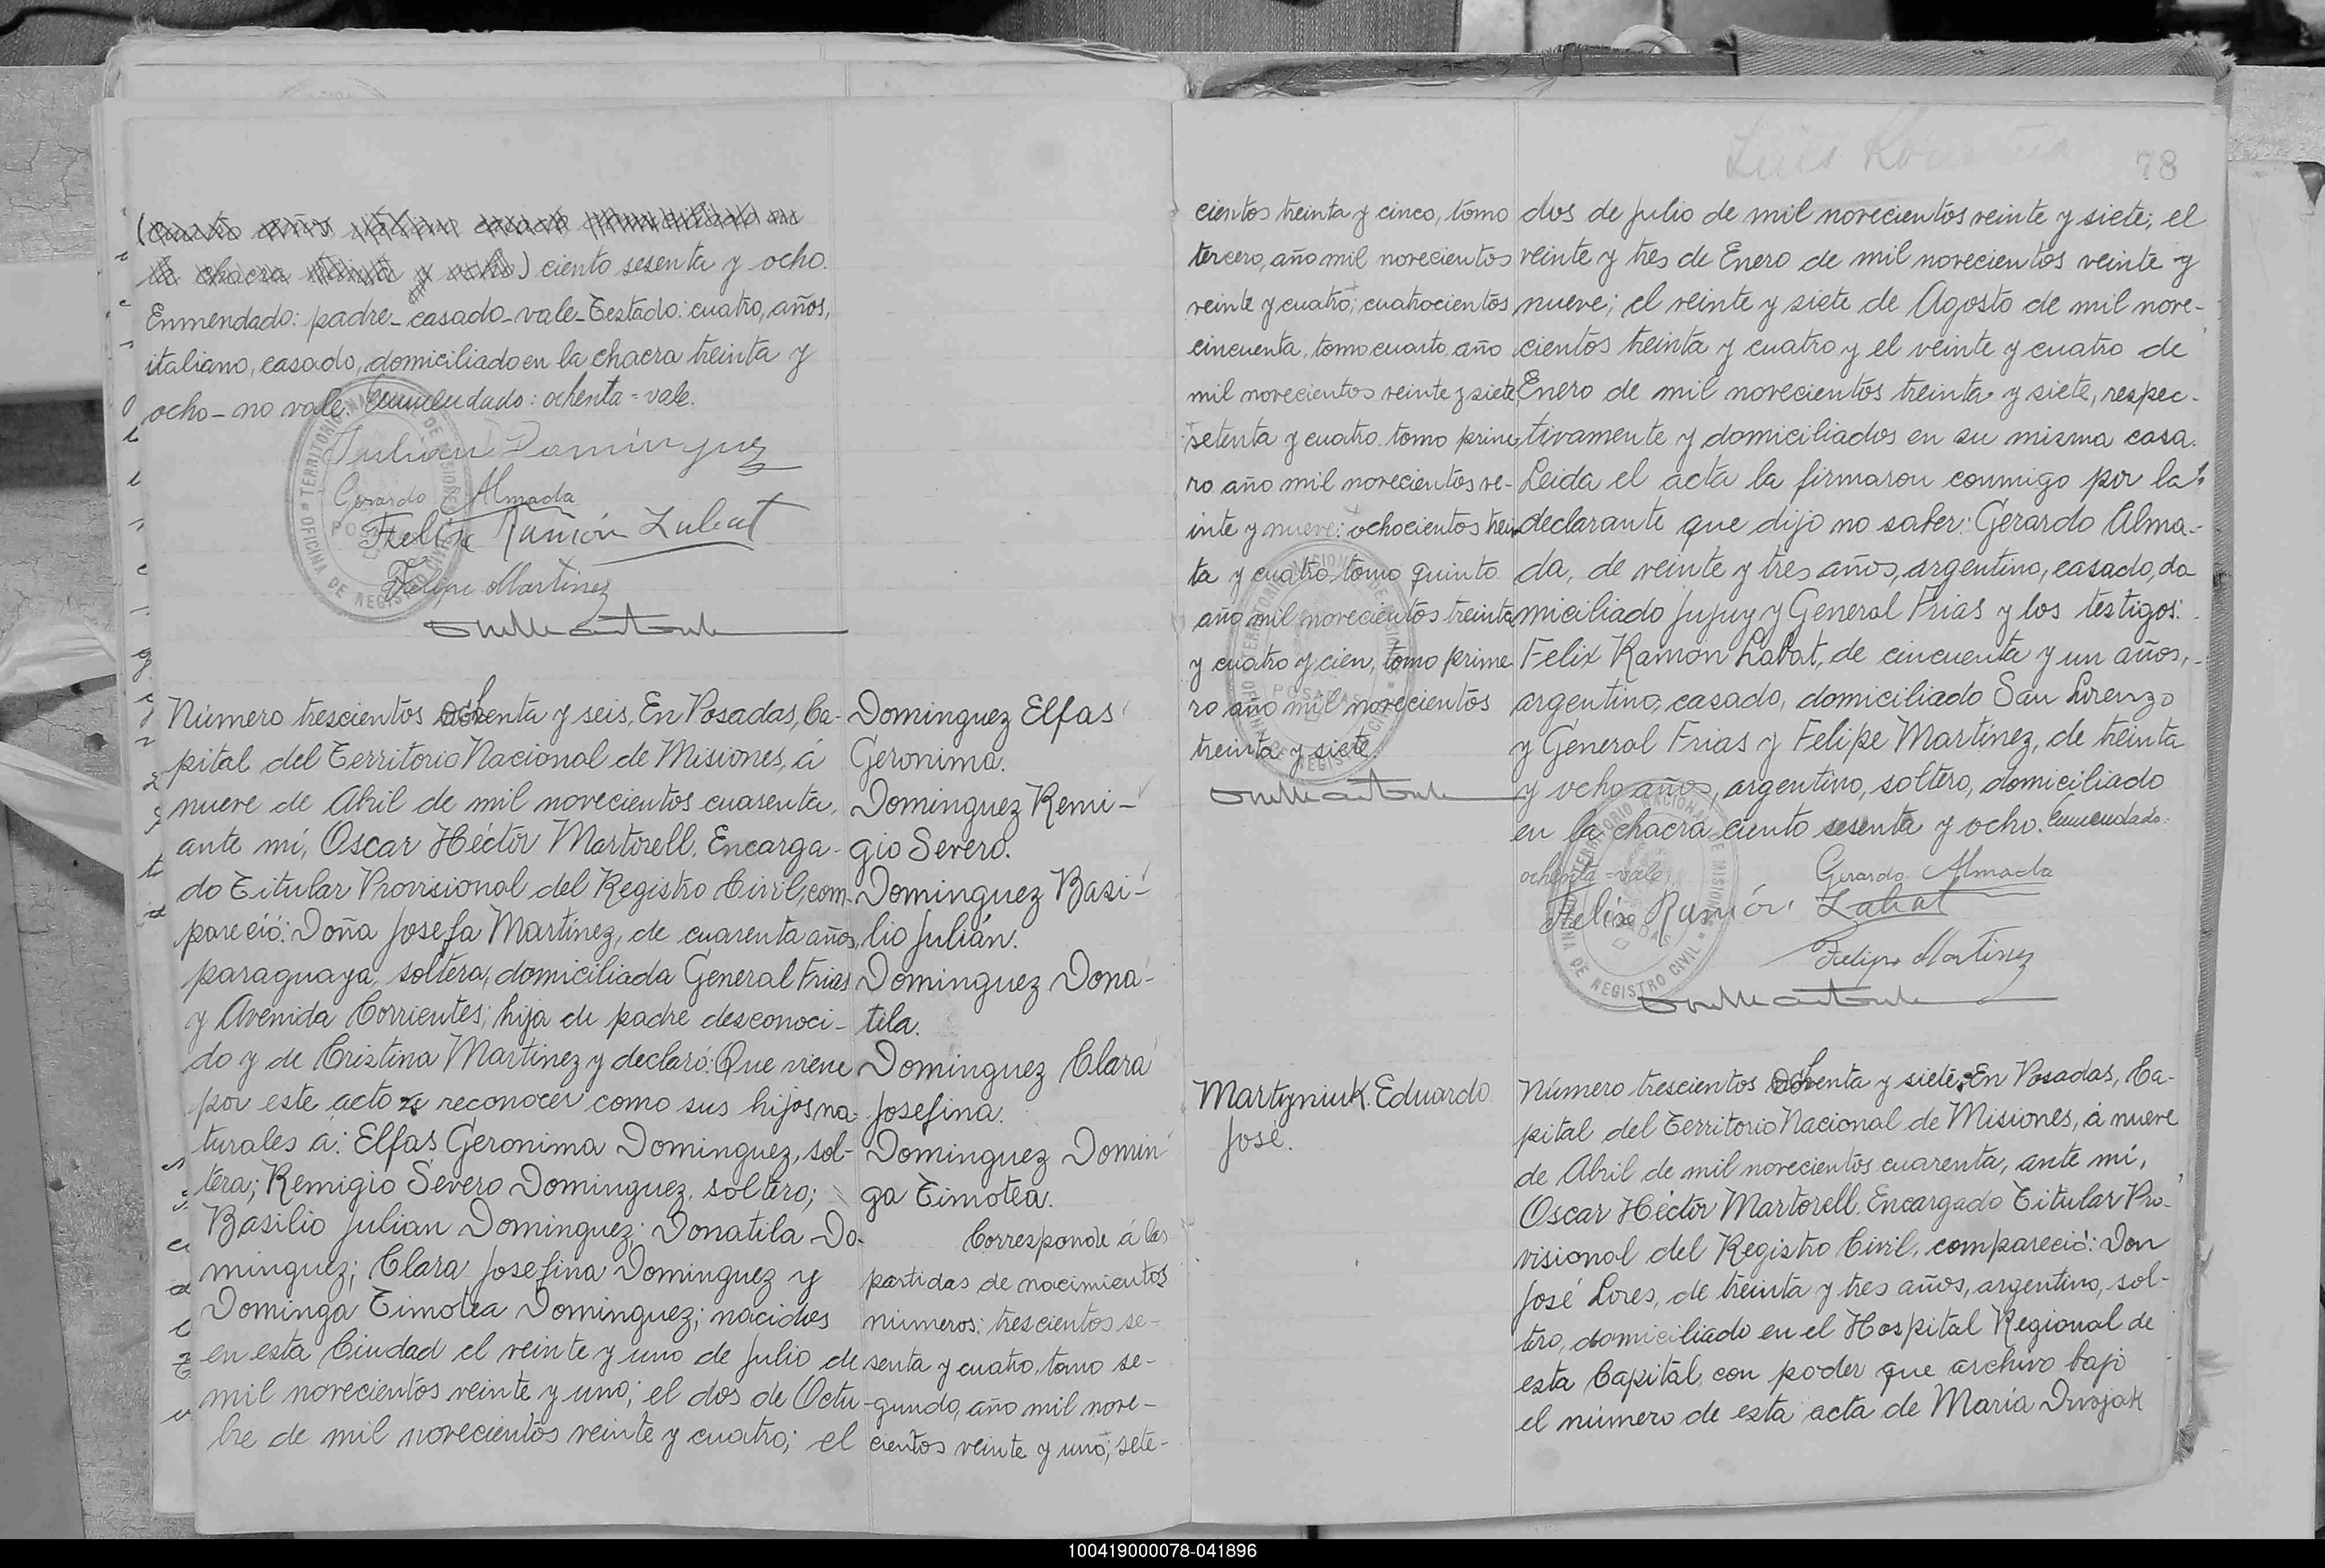 (cuatro años italiano casado domiciliado en
la chacra treinta y ocho) ciento sesenta y ocho.
Enmendado: padre_casado_vale_Testado: cuatro, años,
italiano, casado, domiciliado en la chacra treinta y
ocho_no vale. Enmendado: ochenta=vale.
Julian Dominguez
Gerardo Almada
Felix Ramón Labat
Felipe Martinez
Número trescientos ochenta y seis. En Posadas, Ca-
pital del Territorio Nacional de Misiones, á
nueve de Abril de mil novecientos cuarenta,
ante mí, Oscar Héctor Martorell, Encarga-
do Titular Provisional del Registro Civil, com-
pareció: Doña Josefa Martinez, de cuarenta años,
paraguaya, soltera, domiciliada General Frias
y Avenida Corrientes; hija de padre desconoci-
do y de Cristina Martinez y declaró: Que viene
por este acto a reconocer como sus hijos na-
turales á: Elfas Geronima Dominguez, sol-
tera; Remigio Severo Dominguez, soltero;
Basilio Julian Dominguez; Donatila Do-
minguez; Clara Josefina Dominguez y
Dominga Timotea Dominguez; nacidos
en esta Ciudad el veinte y uno de Julio de
mil novecientos veinte y uno; el dos de Octu-
bre de mil novecientos veinte y cuatro; el
Dominguez Elfas
Geronima.
Dominguez Remi-
gio Severo.
Dominguez Basi-
lio Julián.
Dominguez Dona-
tila.
Dominguez Clara
Josefina.
Dominguez Domin
ga Timotea.
Corresponde á las
partidas de nacimientos
números: trescientos se-
senta y cuatro, tomo se-
gundo, año mil nove-
cientos veinte y uno; sete-
78
cientos treinta y cinco, tomo
tercero, año mil novecientos
veinte y cuatro; cuatrocientos
cincuenta, tomo cuarto, año
mil novecientos veinte y siete
setenta y cuatro tomo prime
ro año mil novecientos ve-
inte y nueve: ochocientos trein
ta y cuatro tomo quinto
año mil novecientos treinta
y cuatro y cien, tomo prime
ro año mil novecientos
treinta y siete
dos de Julio de mil novecientos veinte y siete; el
veinte y tres de Enero de mil novecientos veinte y
nueve; el veinte y siete de Agosto de mil nove-
cientos treinta y cuatro y el veinte y cuatro de
Enero de mil novecientos treinta y siete, respec-
tivamente y domiciliados en su misma casa.
Leida el acta la firmaron conmigo por la
declarante que dijo no saber: Gerardo Alma-
da, de veinte y tres años, argentino, casado, do
miciliado Jujuy y General Frias y los testigos:
Felix Ramón Labat, de cincuenta y un años,
argentino, casado, domiciliado San Lorenzo
y General Frias y Felipe Martinez, de treinta
y ocho años, argentino, soltero, domiciliado
en la chacra ciento sesenta y ocho. Enmendado:
ochenta=vale.
Gerardo Almada
Felix Ramón Labat
Felipe Martinez
Martyniuk Eduardo
José.
Número trescientos ochenta y siete. En Posadas, Ca-
pital del Territorio Nacional de Misiones, á nueve
de Abril de mil novecientos cuarenta, ante mí,
Oscar Héctor Martorell, Encargado Titular Pro-
visional del Registro Civil, compareció: Don
José Lores, de treinta y tres años, argentino, sol-
tero, domiciliado en el Hospital Regional de
esta Capital, con poder que archivo bajo
el número de esta acta de María Dwojak
100419000078-041896